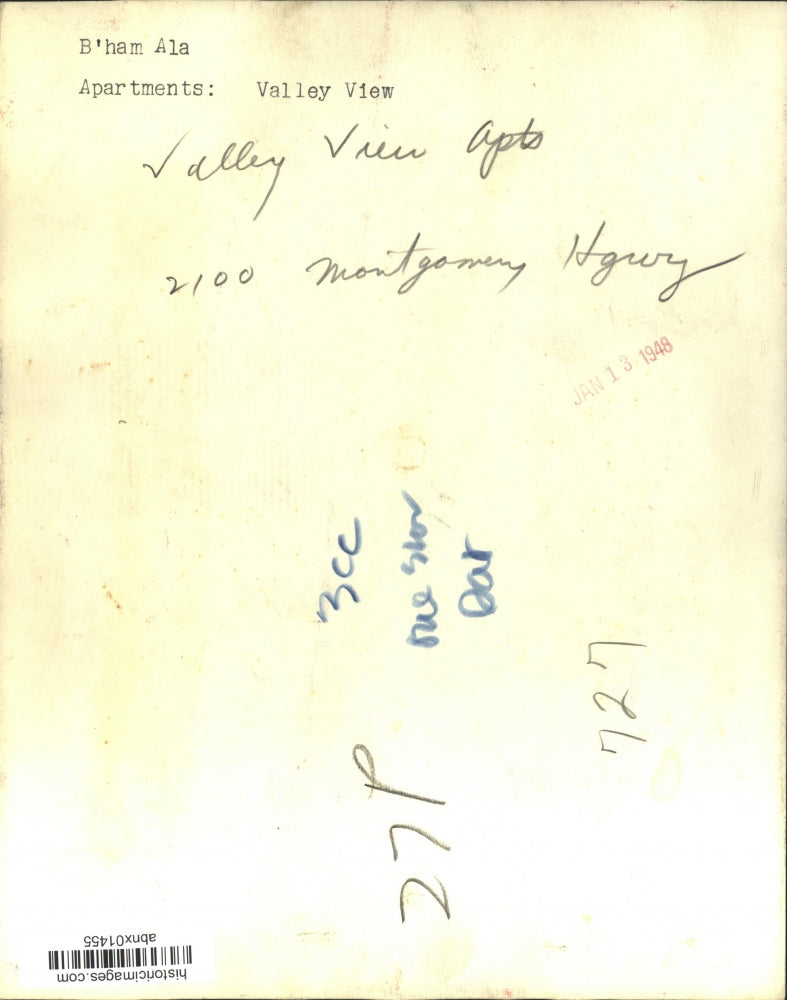 B'ham Ala
Apartments: Valley View
Valley View Apts
2100 Montgomery Hgwy
JAN 13 1948
3cc
one
727
27P
historicimages.com
abnx01455